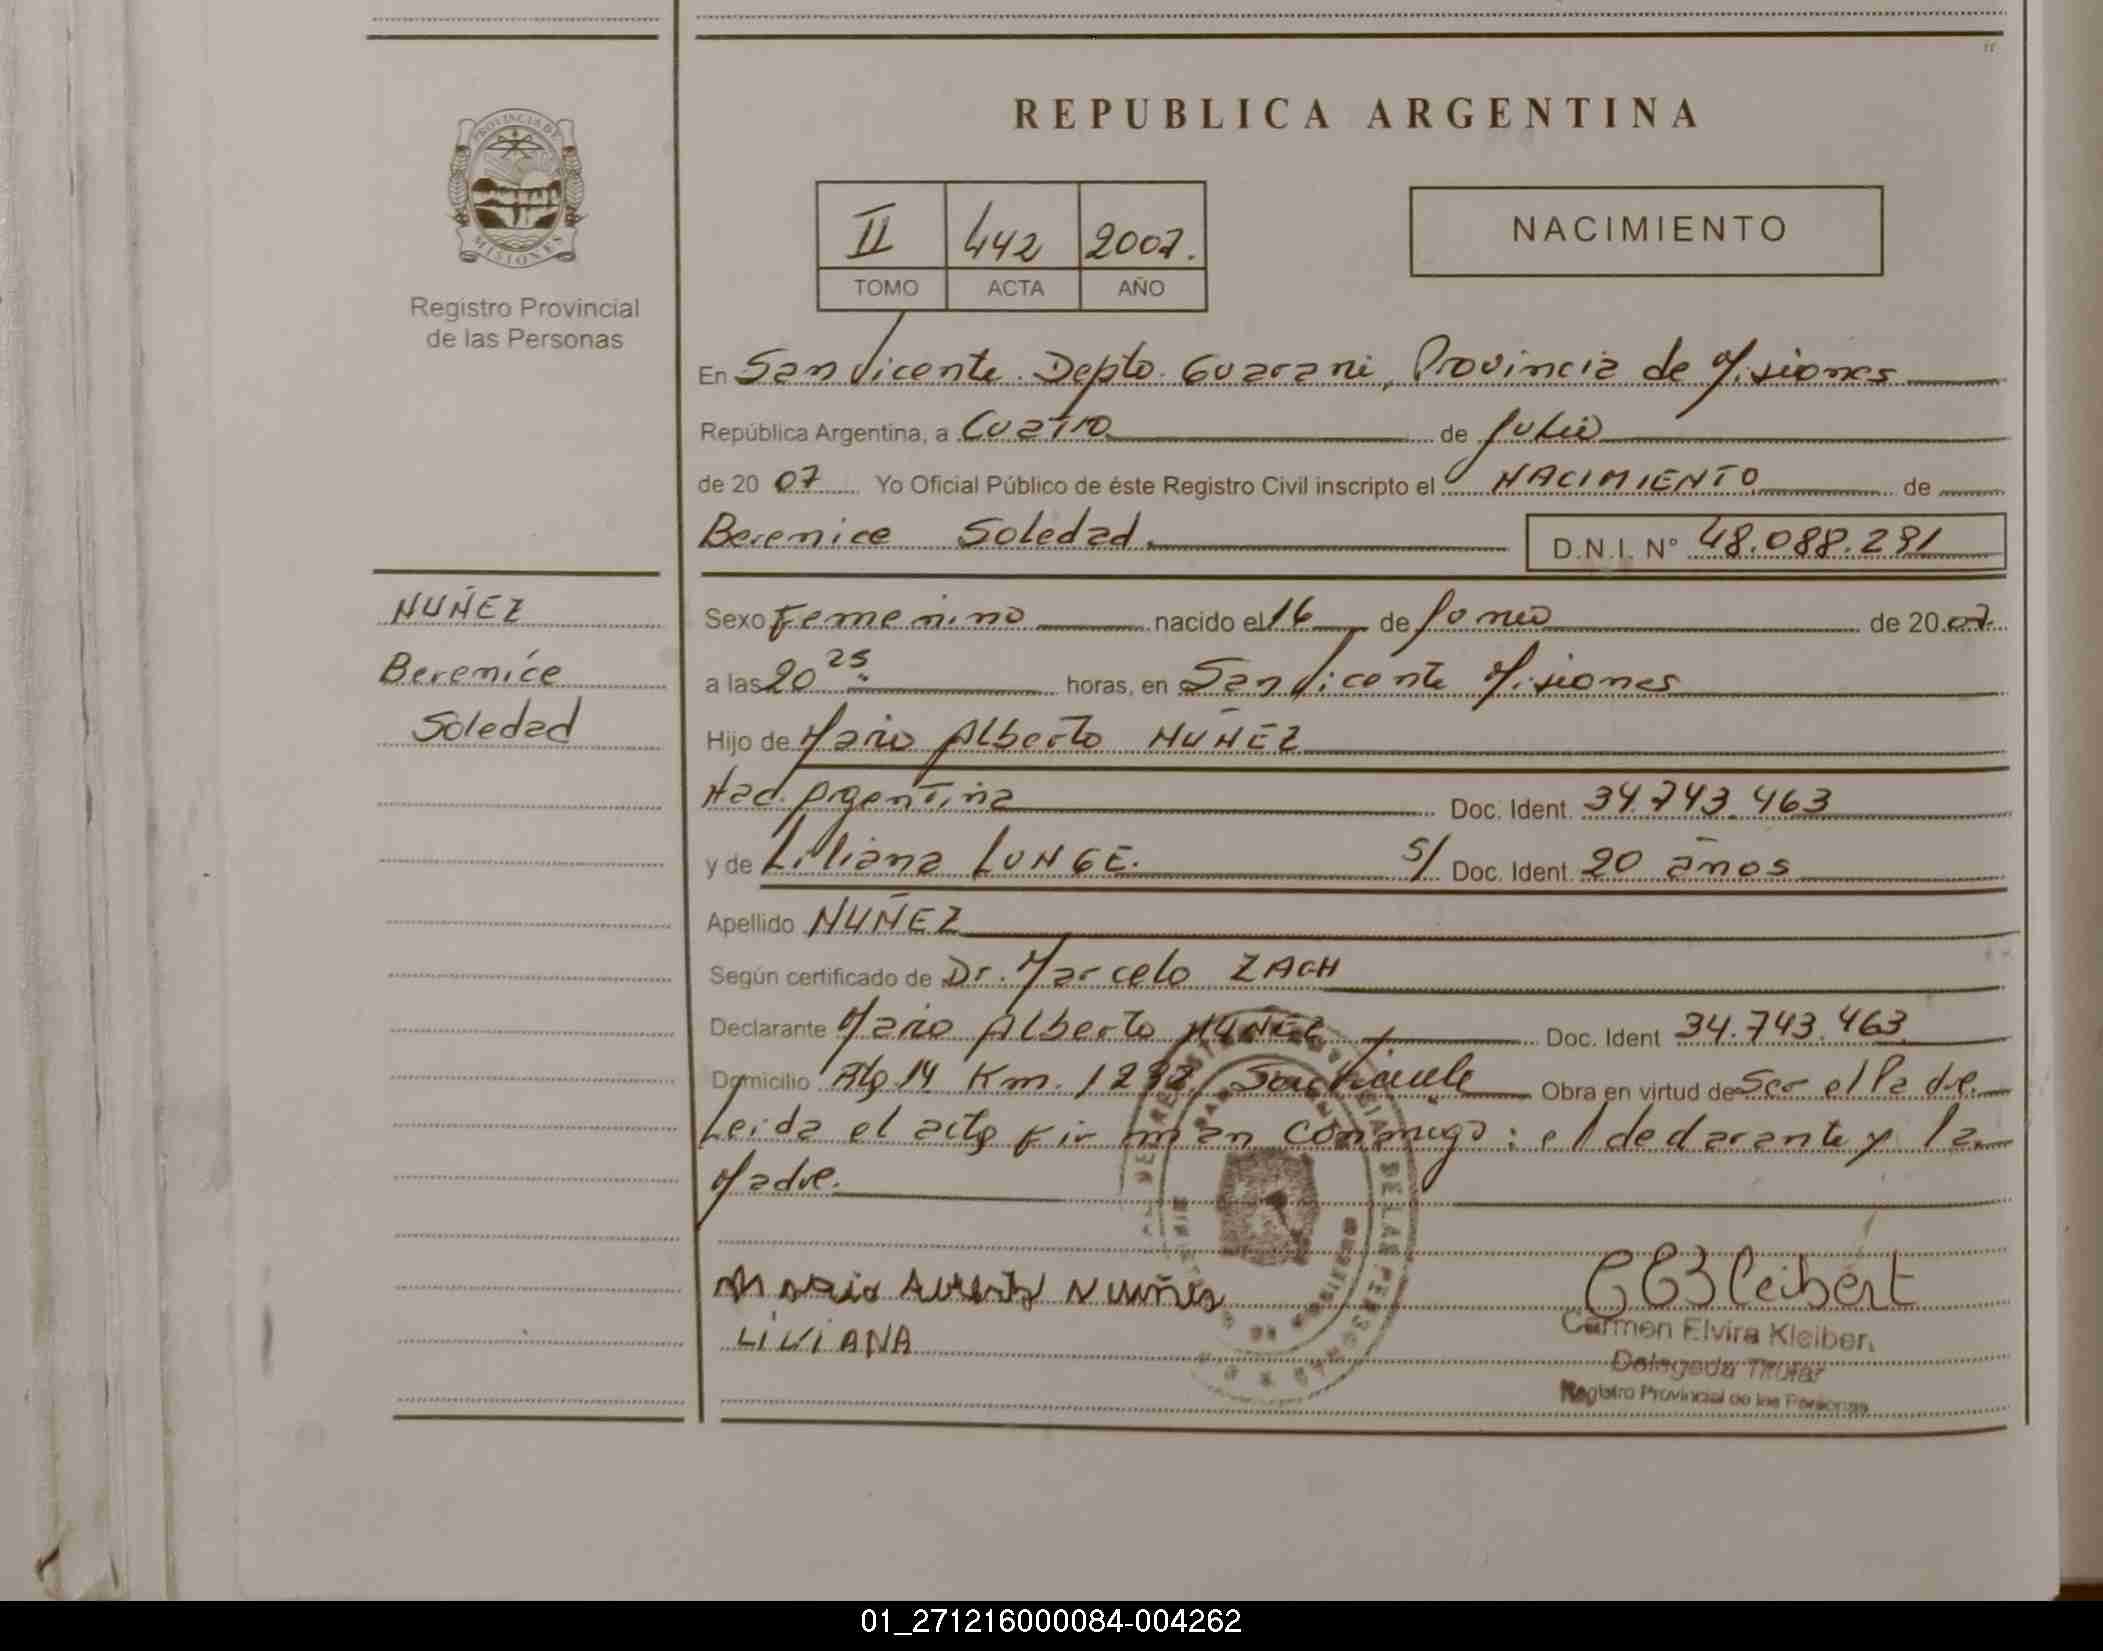 REPUBLICA ARGENTINA
PROVINCIA DE
MISIONES
Registro Provincial
de las Personas
II 442 2007.
TOMO ACTA AÑO
NACIMIENTO
En San Vicente. Depto. Guarani, Provincia de Misiones
República Argentina, a Cuatro de Julio
de 20 07 Yo Oficial Público de éste Registro Civil inscripto el NACIMIENTO de
Berenice Soledad. D.N.I. Nº 48.088.291
NUÑEZ
Berenice
Soledad
Sexo Femenino nacido el 16 de Junio de 20 07.
a las 20 25 horas, en San Vicente Misiones
Hijo de Mario Alberto NUÑEZ
Nac. Argentina Doc. Ident. 34.743.463
y de Liliana LUNGE. S/ Doc. Ident 20 años
Apellido NUÑEZ
Según certificado de Dr. Marcelo ZACH
Declarante Mario Alberto NUÑEZ Doc. Ident 34.743.463
Domicilio Km. San Vicente Obra en virtud de Ser el Padre.
Leida el acta firman conmigo: el declarante y la
Madre.
Mario Alberto Nuñes
LILIANA
Carmen Elvira Kleibert
Delegada Titular
Registro Provincial de las Personas
01_271216000084-004262